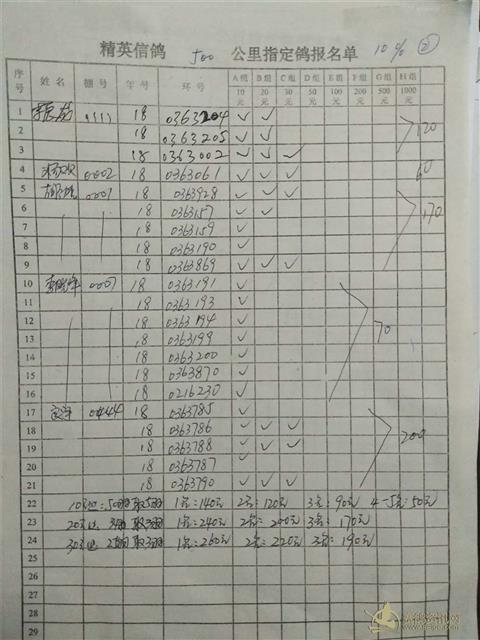 精英信鸽 500 公里指定鸽报名单 10% ②
序号 姓名 棚号 年号 环号 A组10元 B组20元 C组30元 D组50元 E组100元 F组200元 G组500元 H组1000元
1 1111 18 0363204 ✓ ✓
2 18 0363205 ✓ ✓ 120
3 18 0363002 ✓ ✓ ✓
4 0002 18 0363061 ✓ ✓ ✓ 60
5 0001 18 0363928 ✓ ✓ ✓
6 18 0363157 ✓ ✓ 170
7 18 0363159 ✓
8 18 0363190 ✓
9 18 0363869 ✓ ✓ ✓
10 0007 18 0363191 ✓
11 18 0363193 ✓
12 18 0363194 ✓ 70
13 18 0363199 ✓
14 18 0363200 ✓
15 18 0363870 ✓
16 18 0216230 ✓
17 0444 18 0363785 ✓
18 18 0363786 ✓ ✓ ✓ 200
19 18 0363788 ✓ ✓ ✓
20 18 0363787 ✓
21 18 0363790 ✓ ✓ ✓
22 10元组: 1名:140元 2名:120元 3名:90元 4-5名:50元
23 20元组 取3羽 1名:240元 2名:200元 3名:170元
24 30元组 取3羽 1名:260元 2名:220元 3名:190元
25
26
27
28
29